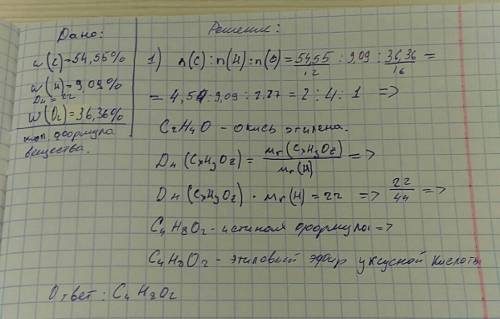 Дано:
w(C)=54,55%
w(H)=9,09%
Dн = 22
W(O2)=36,36%
формула
вещества.
Решение:
1) n(C):n(H):n(O)=54,55/12 : 9,09 : 36,36/16 =
= 4,54:9,09:2,27 = 2:4:1 =>
C2H4O - окись этилена.
Dн(CxHyOz) = Mr(CxHyOz)/Mr(H) =>
Dн(CxHyOz) · Mr(H) = 22 => 22/44 =>
C4H8O2 - истиная формула =>
C4H8O2 - этиловый эфир уксусной кислоты
Ответ: C4H8O2